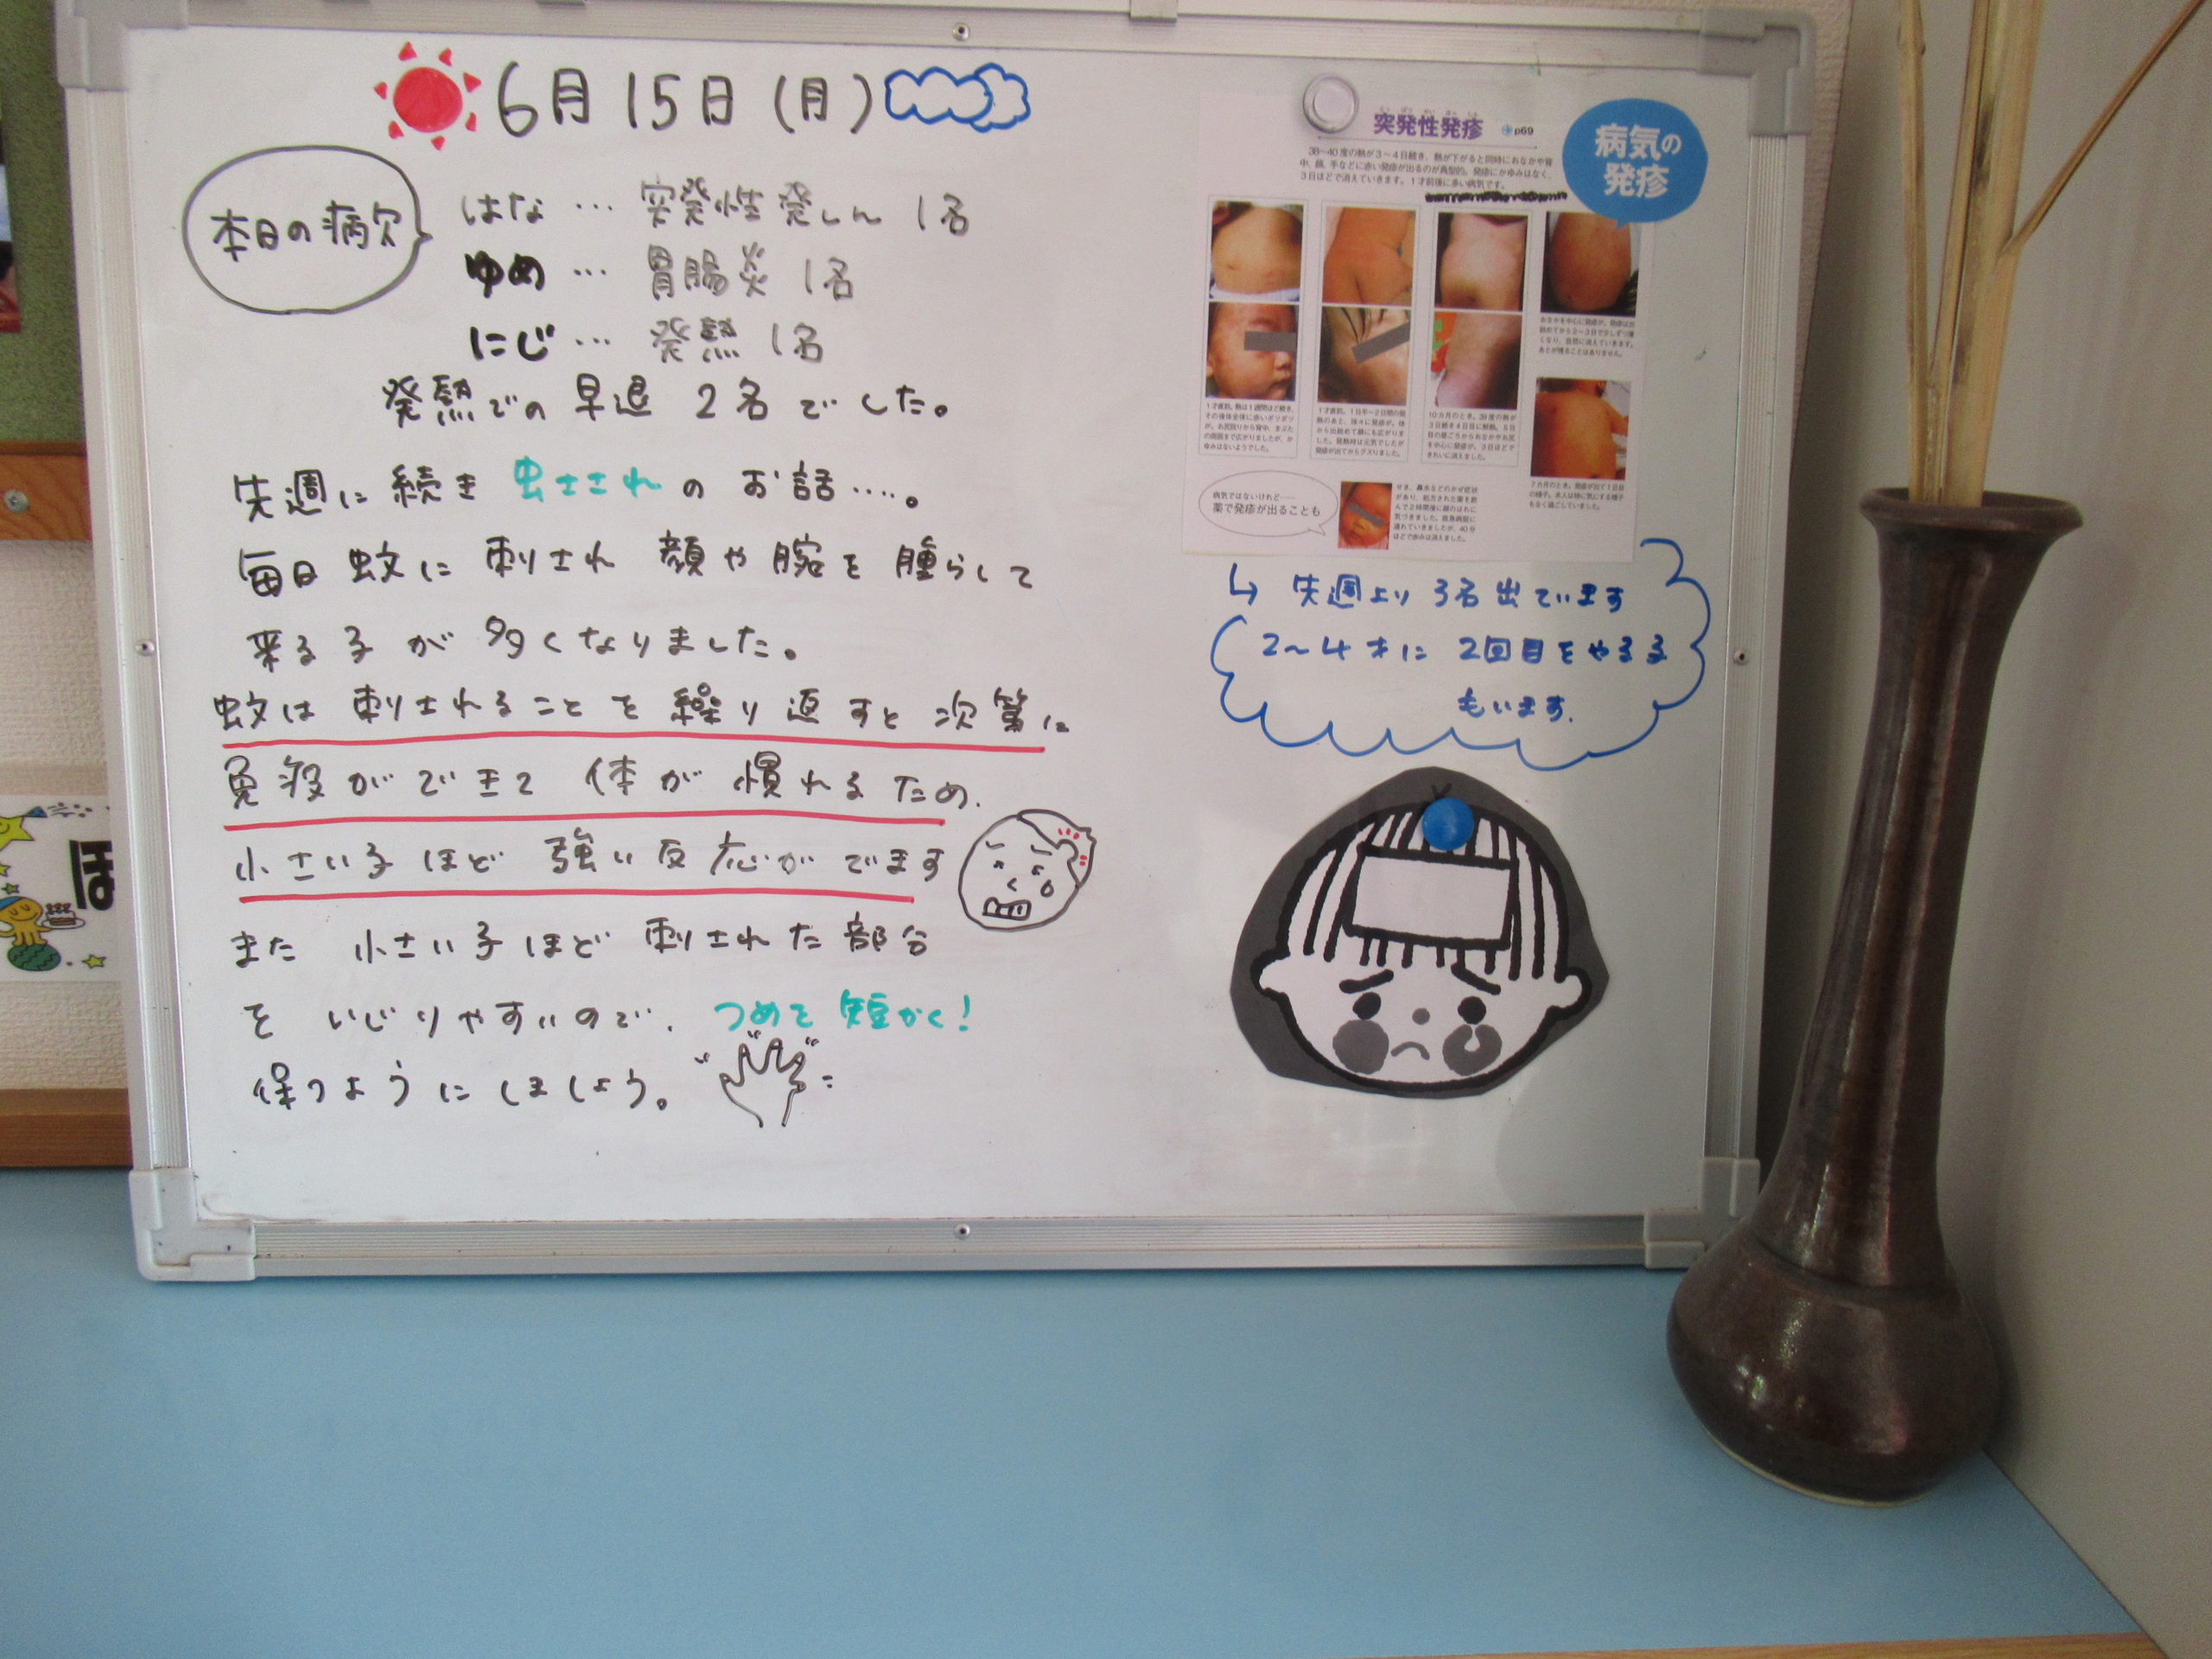 6月15日(月)
本日の病欠
はな … 突発性発しん 1名
ゆめ … 胃腸炎 1名
にじ … 発熱 1名
発熱での早退 2名でした。
先週に続き 虫さされの お話....。
毎日 蚊に 刺され 顔や腕を 腫らして
来る子が多くなりました。
蚊は 刺されることを繰り返すと次第に
免疫ができて 体が慣れるため、
小さい子ほど 強い反応がでます
また 小さい子ほど 刺された部分
を いじりやすいので、つめを短かく!
保つようにしましょう。
突発性発疹 p69
病気の
発疹
38〜40度の熱が3〜4日続き、熱が下がると同時におなかや背
中、顔、手などに赤い発疹が出るのが典型的。発疹にかゆみはなく、
3日ほどで消えていきます。1才前後に多い病気です。
病気ではないけれど……
薬で発疹が出ることも
↳ 先週より 3名出ています
2〜4才に 2回目をやる子
もいます.
ほ